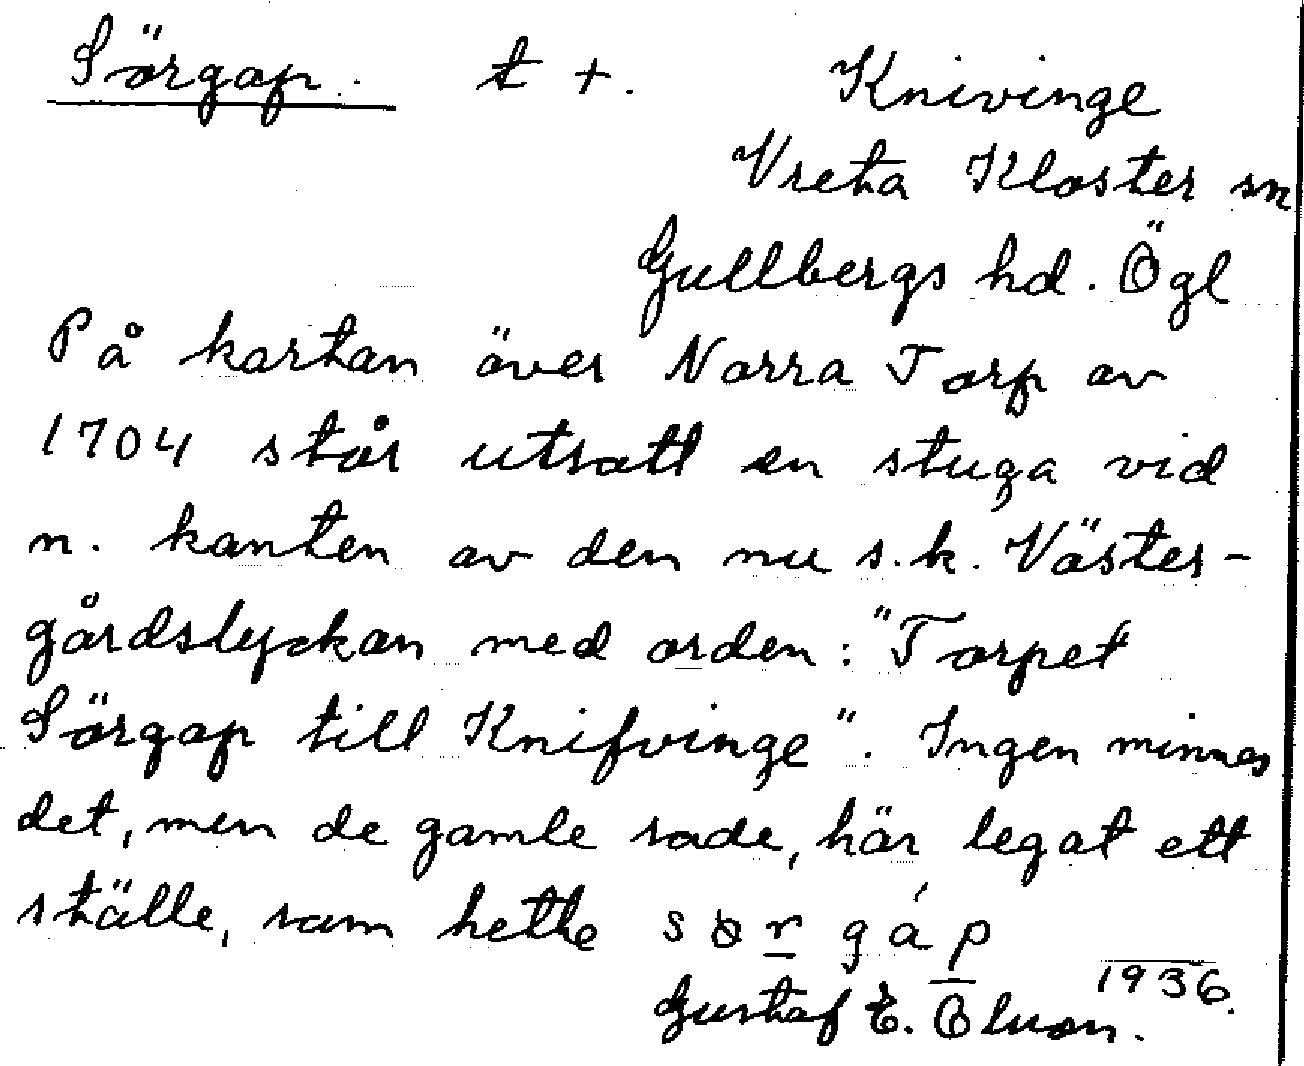 Sörgap. t +. Knivinge
Vreta Kloster sn
Gullbergs hd. Ögl
På kartan över Norra Torp av
1704 står utsatt en stuga vid
n. kanten av den nu s.k. Väster-
gårdslyckan med orden: "Torpet
Sörgap till Knifvinge". Ingen minnes
det, men de gamle sade, här legat ett
ställe, som hette
1936.
Gustaf E.